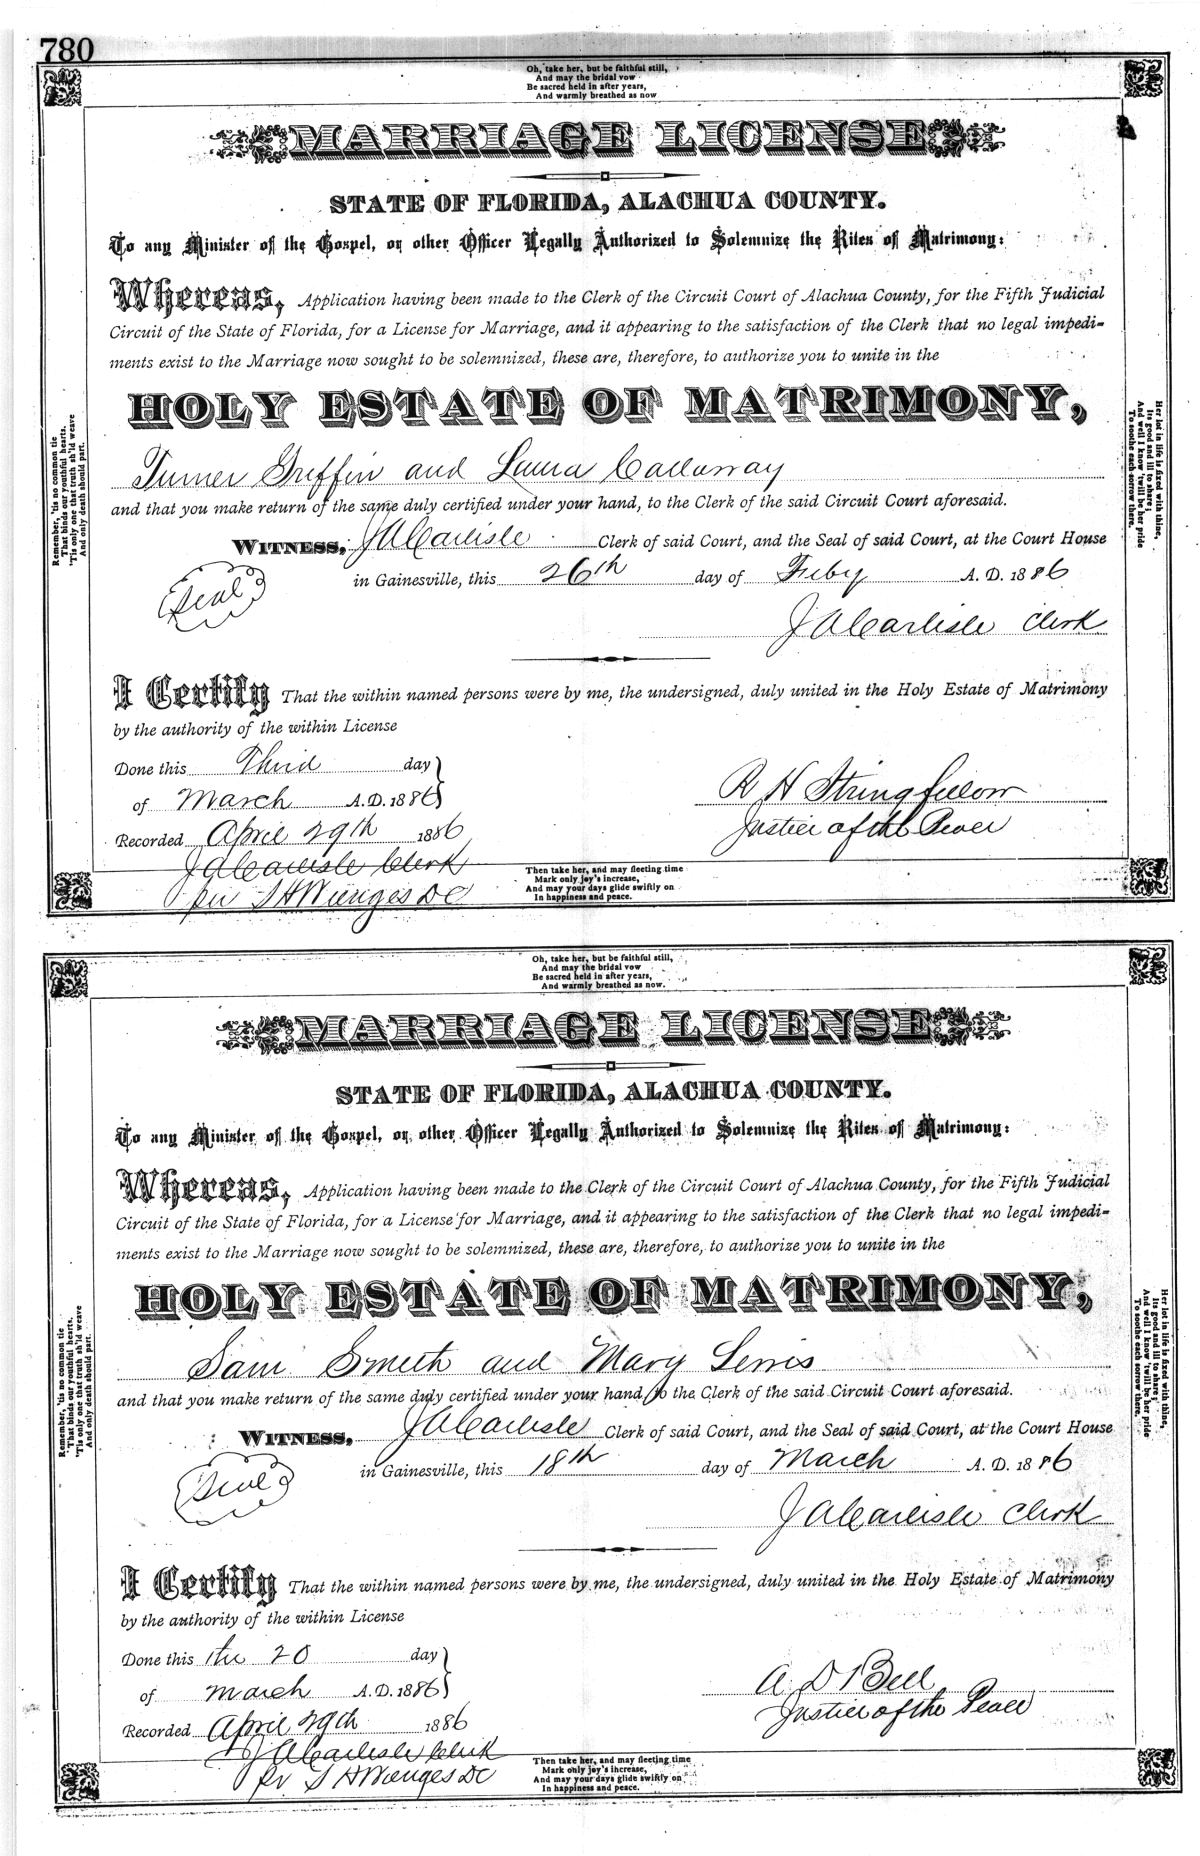 780
Oh, take her, but be faithful still,
And may the bridal vow
Be sacred held in after years,
And warmly breathed as now
MARRIAGE LICENSE
STATE OF FLORIDA, ALACHUA COUNTY.
To any Minister of the Gospel, or other Officer Legally Authorized to Solemnize the Rites of Matrimony:
Whereas, Application having been made to the Clerk of the Circuit Court of Alachua County, for the Fifth Judicial
Circuit of the State of Florida, for a License for Marriage, and it appearing to the satisfaction of the Clerk that no legal impedi-
ments exist to the Marriage now sought to be solemnized, these are, therefore, to authorize you to unite in the
HOLY ESTATE OF MATRIMONY,
Turner Griffin and Laura Callaway
and that you make return of the same duly certified under your hand, to the Clerk of the said Circuit Court aforesaid.
WITNESS, J A Carlisle Clerk of said Court, and the Seal of said Court, at the Court House
in Gainesville, this 26th day of Feby A. D. 1886
Seal
J A Carlisle Clerk
I Certify That the within named persons were by me, the undersigned, duly united in the Holy Estate of Matrimony
by the authority of the within License
Done this Third day
of March A.D. 1886
R H Stringfellow
Justice of the Peace
Recorded April 29th 1886
J A Carlisle Clerk
per S H Wienges DC
Then take her, and may fleeting time
Mark only joy's increase,
And may your days glide swiftly on
In happiness and peace.
Remember, 'tis no common tie
That binds our youthful hearts.
'Tis only one that truth sh'ld weave
And only death should part.
Her lot in life is fixed with thine,
Its good and ill to share;
And well I know 'twill be her pride
To soothe each sorrow there.
Oh, take her, but be faithful still,
And may the bridal vow
Be sacred held in after years,
And warmly breathed as now.
MARRIAGE LICENSE
STATE OF FLORIDA, ALACHUA COUNTY.
To any Minister of the Gospel, or other Officer Legally Authorized to Solemnize the Rites of Matrimony:
Whereas, Application having been made to the Clerk of the Circuit Court of Alachua County, for the Fifth Judicial
Circuit of the State of Florida, for a License for Marriage, and it appearing to the satisfaction of the Clerk that no legal impedi-
ments exist to the Marriage now sought to be solemnized, these are, therefore, to authorize you to unite in the
HOLY ESTATE OF MATRIMONY,
Sam Smith and Mary Lewis
and that you make return of the same duly certified under your hand, to the Clerk of the said Circuit Court aforesaid.
WITNESS, J A Carlisle Clerk of said Court, and the Seal of said Court, at the Court House
in Gainesville, this 18th day of March A. D. 1886
Seal
J A Carlisle Clerk
I Certify That the within named persons were by me, the undersigned, duly united in the Holy Estate of Matrimony
by the authority of the within License
Done this the 20 day
of March A.D. 1886
A D Bell
Justice of the Peace
Recorded April 29th 1886
J A Carlisle Clerk
per S H Wienges DC
Then take her, and may fleeting time
Mark only joy's increase,
And may your days glide swiftly on
In happiness and peace.
Remember, 'tis no common tie
That binds our youthful hearts.
'Tis only one that truth sh'ld weave
And only death should part.
Her lot in life is fixed with thine,
Its good and ill to share;
And well I know 'twill be her pride
To soothe each sorrow there.